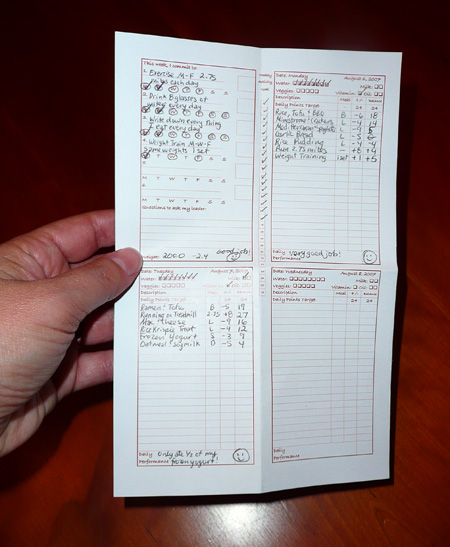 This week, I commit to:
1. Exercise M-F 2.75
miles each day
M T W T F S S
2. Drink 8 glasses of
water every day
M T W T F S S
3. Write down every thing
I eat every day
M T W T F S S
4. Weight Train M-W-F
1 set
M T W T F S S
5.
M T W T F S S
6.
M T W T F S S
Questions to ask my leader:
Weight: 2000 -2.4 Good job!
Date: Monday August 6, 2007
Water: Milk:
Veggies: Vitamin: Oil:
Description Meal +/- Balance
Daily Points Target 24 24
Rice, Tofu, BBQ B -6 18
Minestrone/Crackers L -4 14
L
Garlic Bread L -5
Rice Pudding L -4 -4
Run 2.75 miles +8 +4
Weight Training 1 set +1 +5
Daily
Performance: Very good job!
Date: Tuesday August 7, 2007
Water: Milk:
Veggies: Vitamin: Oil:
Description
Daily Points Target 24 24
Ramen, Tofu B -5 19
Running on Treadmill 2.75 +8 27
Mac + Cheese L
Rice Krispie Treat L -4 12
Frozen Yogurt S -3 9
Oatmeal, Soymilk D -5 4
Daily
Performance: Only ate 1/2 of my
frozen yogurt!
Date: Wednesday August 8, 2007
Water: Milk:
Veggies: Vitamin: Oil:
Description Meal +/- Balance
Daily Points Target 24 24
Daily
Performance: